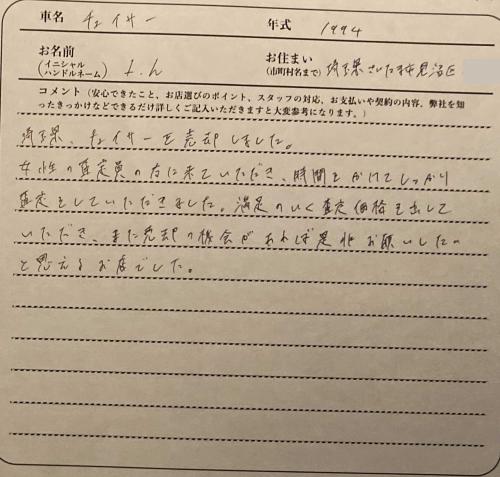 車名 チェイサー 年式 1994
お名前 (イニシャル ハンドルネーム) t.h お住まい (市町村名まで) 埼玉県さいたま市見沼区
コメント(安心できたこと、お店選びのポイント、スタッフの対応、お支払いや契約の内容、弊社を知
ったきっかけなどできるだけ詳しくご記入いただきますと大変参考になります。)
埼玉県、チェイサーを売却しました。
女性の査定員の方に来ていただき、時間をかけてしっかり
査定をしていただきました。満足のいく査定価格を出して
いただき、また売却の機会があれば是非お願いしたい
と思えるお店でした。